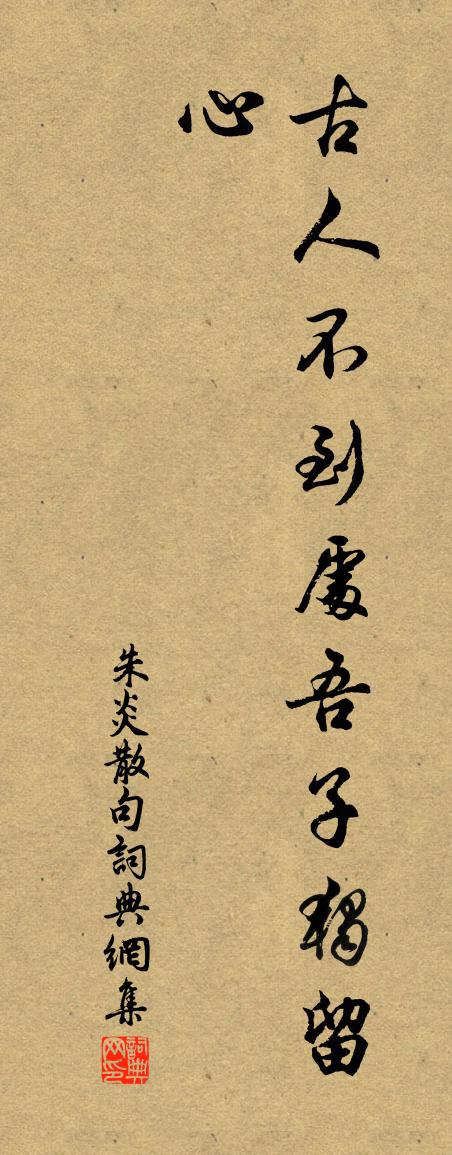 古人不到處吾子獨留
心
朱炎散句詞典網集
詞典网印